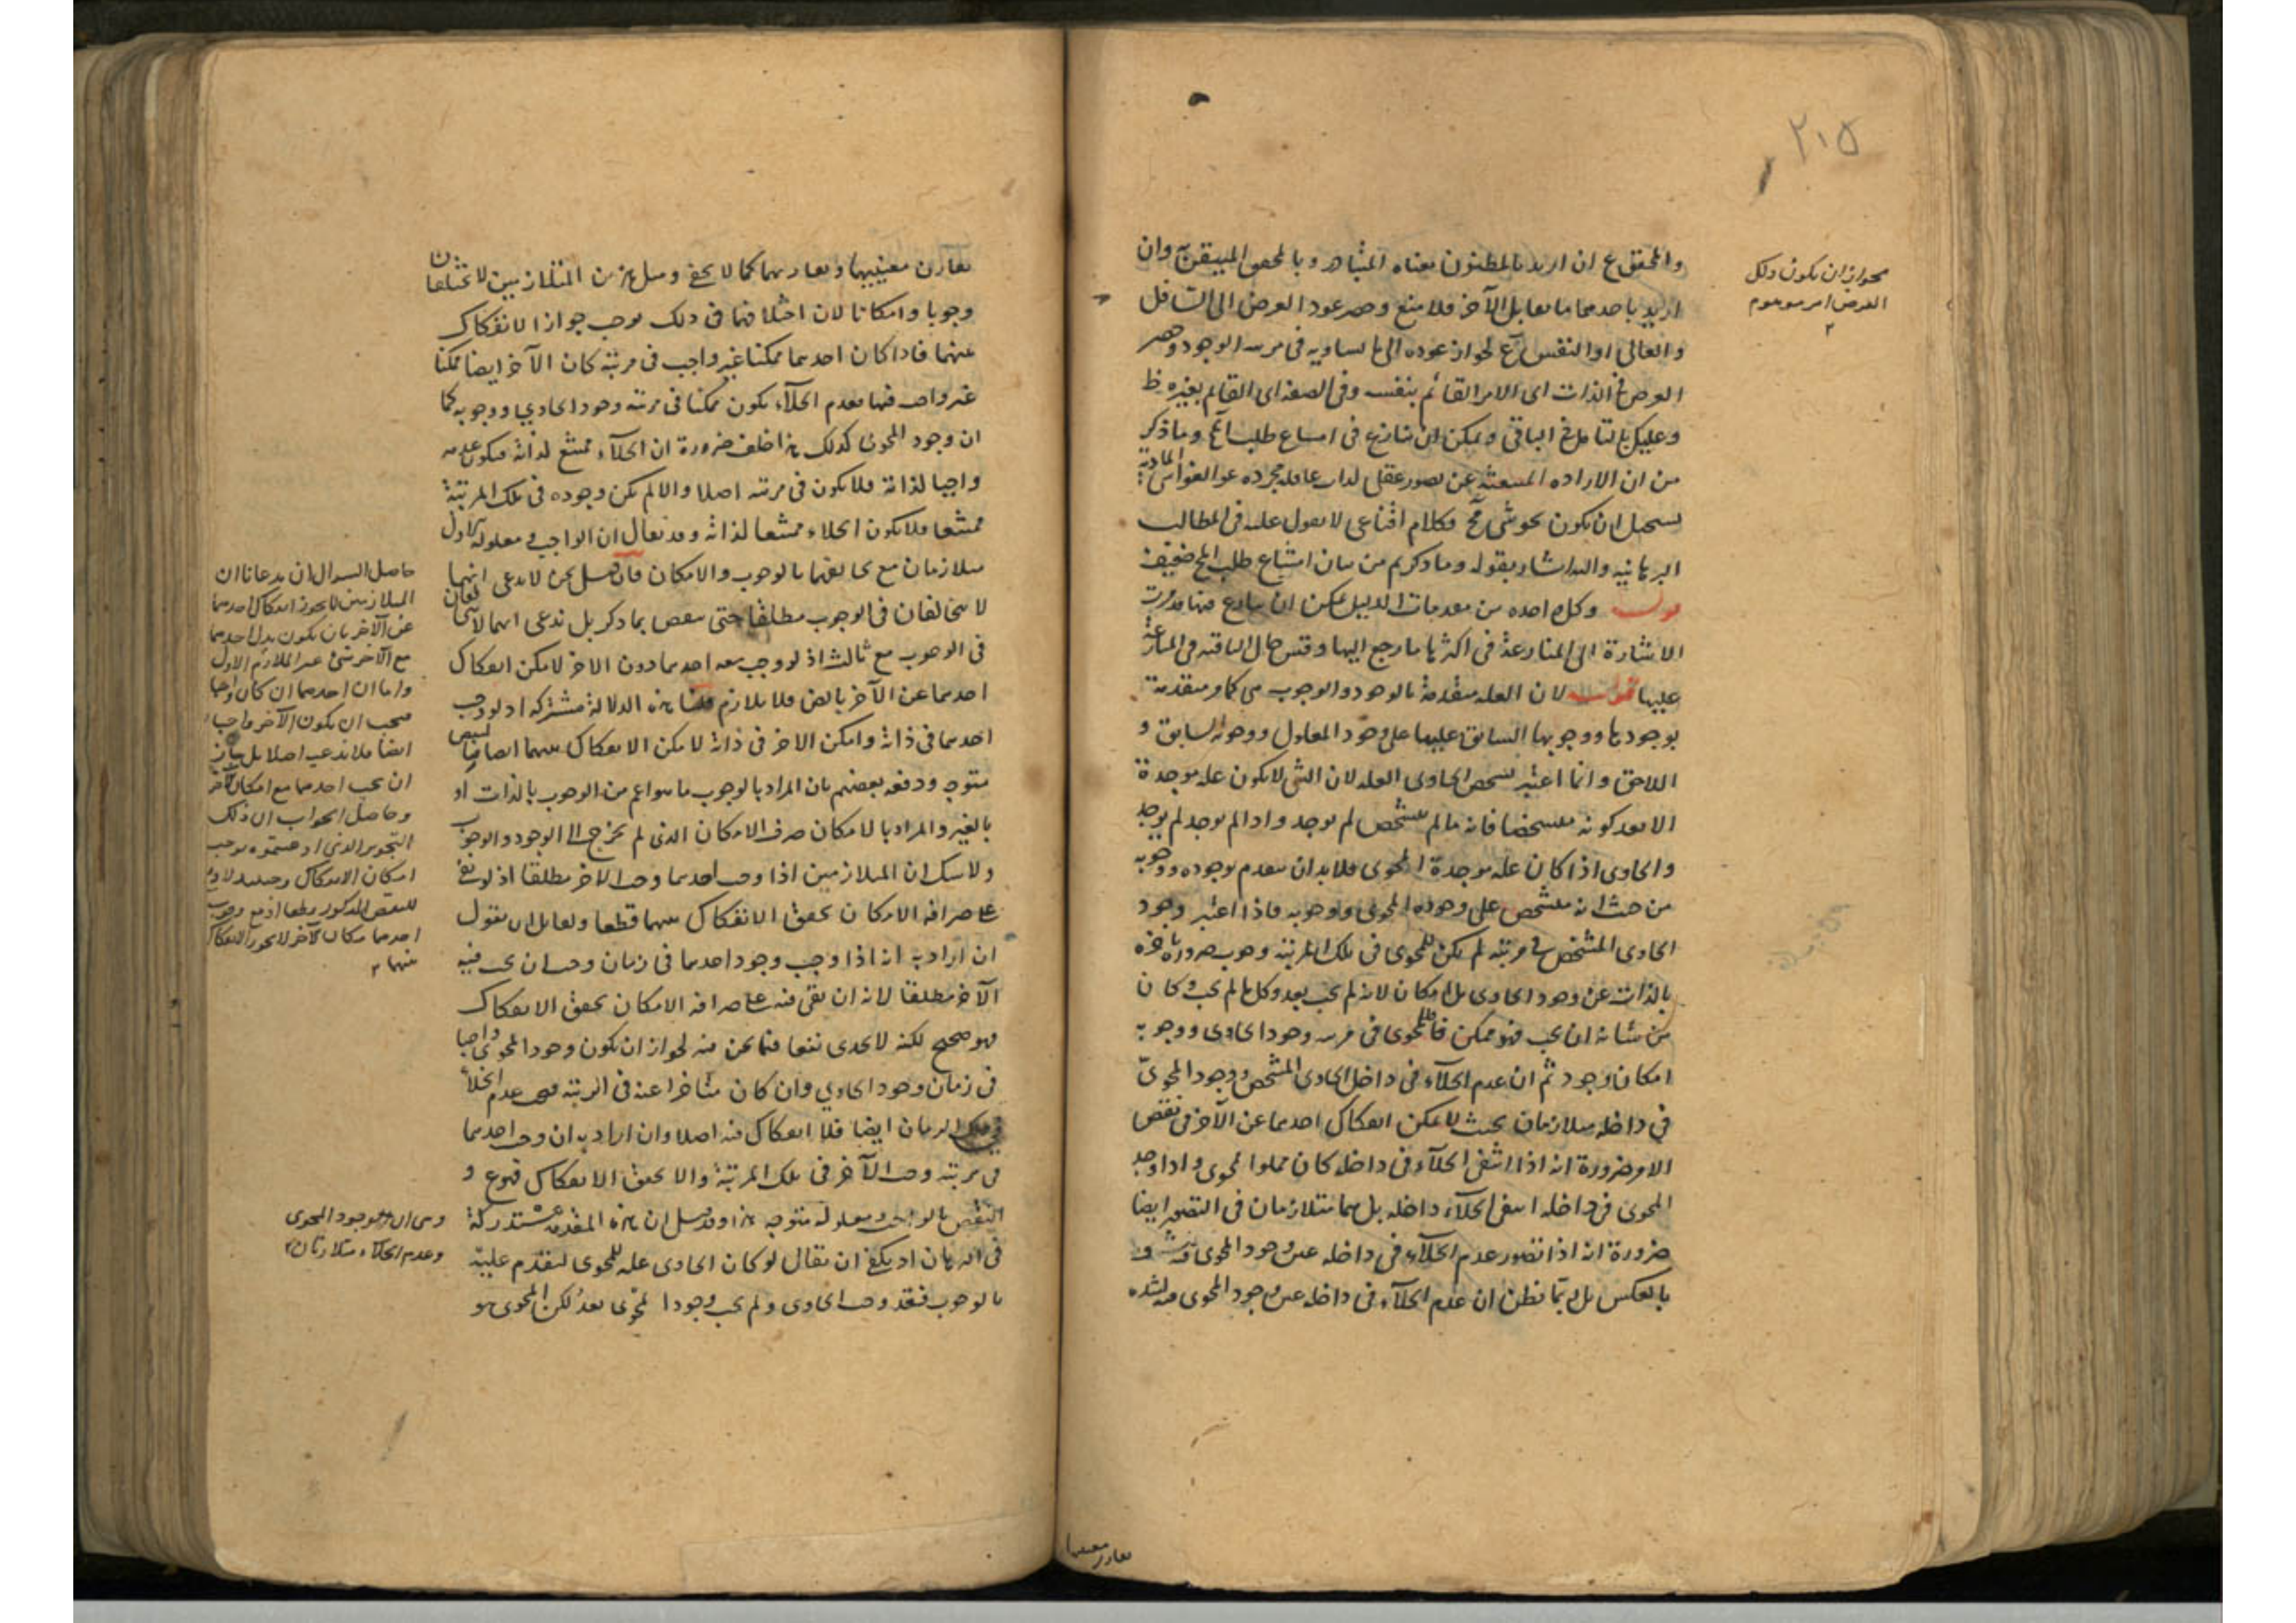 ٢١٥
والمحقق ع ان اريد بالمظنون معناه المتبادر وبالمحقق المتيقن وان
اريد باحدهما ما يقابل الآخر فلا منع وحصر عود الغرض الى السافل
والعالى او النفس ع لجواز عوده الى ما يساويه فى مرتبة الوجود وحصر
الغرض فى الذات اى الامر القائم بنفسه وفى الصفة اى القائم بغيره ظ
وعليك بالتأمل فى الباقى ويمكن ان ينازع فى امتناع طلب المح وما ذكر
من ان الارادة المنبعثة عن تصور عقلى لذات عاقلة مجردة عن الغواشى المادية
يستحيل ان يكون نحو شئ مح فكلام اقناعى لا يعول عليه فى المطالب
البرهانية واليه اشار بقوله وما ذكرتم من بيان امتناع طلب المح ضعيف
قوله وكل واحدة من مقدمات الدليل يمكن ان ينازع فيها قد مرت
الاشارة الى المنازعة فى اكثرها ما رجع اليها وقس حال الباقية فى المنازعة
عليها قوله لان العلة متقدمة بالوجود والوجوب هى كما متقدمة
بوجودها ووجوبها السابق عليها على وجود المعلول ووجوبه السابق و
اللاحق وانما اعتبر تشخص الحاوى العلة لان الشئ لا يكون علة موجدة
الا بعد كونه متشخصا فانه ما لم يتشخص لم يوجد واذا لم يوجد لم يوجد
والحاوى اذا كان علة موجدة المحوى فلا بد ان يتقدم بوجوده ووجوبه
من حيث انه متشخص على وجود المحوى ووجوبه فاذا اعتبر وجود
الحاوى المشخص فى مرتبة لم يكن للمحوى فى تلك المرتبة وجوب ضرورة تأخره
بالذات عن وجود الحاوى بل امكان لانه لم يجب بعد وكل ما لم يجب وكان
من شانه ان يجب فهو ممكن فللمحوى فى مرتبة وجود الحاوى ووجوبه
امكان وجود ثم ان عدم الخلاء فى داخل الحاوى المشخص ووجود المحوى
فى داخله متلازمان بحيث لا يمكن انفكاك احدهما عن الآخر فى نفس
الامر ضرورة انه اذا انتفى الخلاء فى داخله كان مملوا بالمحوى واذا وجد
المحوى فى داخله انتفى الخلاء داخله بل هما متلازمان فى التصور ايضا
ضرورة انه اذا تصور عدم الخلاء فى داخله عين وجود المحوى فيه و
بالعكس بل ربما يظن ان عدم الخلاء فى داخله عين وجود المحوى فيه لشدة
لجواز ان يكون ذلك
الغرض امر موهوم
تقارن معنييهما وتقاربهما كما لا يخفى ومثل هذين المتلازمين لا يختلفان
وجوبا وامكانا لان اختلافهما فى ذلك يوجب جواز الانفكاك
عنهما فاذا كان احدهما ممكنا غير واجب فى مرتبة كان الآخر ايضا ممكنا
غير واجب فيها فعدم الخلاء يكون ممكنا فى مرتبة وجود الحاوى ووجوبه كما
ان وجود المحوى كذلك هذا خلف ضرورة ان الخلاء ممتنع لذاته فيكون عدمه
واجبا لذاته فلا يكون فى مرتبة اصلا والا لم يكن وجوده فى تلك المرتبة
ممتنعا فلا يكون الخلاء ممتنعا لذاته وقد يقال ان الواجب ومعلوله الاول
متلازمان مع تخالفهما بالوجوب والامكان فان قيل نحن لا ندعى انهما
لا يتخالفان فى الوجوب مطلقا حتى ينقض بما ذكر بل ندعى انهما لا يتخالفان
فى الوجوب مع ثالث اذ لو وجب معه احدهما دون الاخر لامكن انفكاك
احدهما عن الآخر بالنظر فلا يلازم قلنا هذه الدلالة مشتركة اذ لو وجب
احدهما فى ذاته وامكن الاخر فى ذاته لامكن الانفكاك بينهما ايضا فالنقض
متوجه ودفعه بعضهم بان المراد بالوجوب ما هو اعم من الوجوب بالذات او
بالغير والمراد بالامكان صرف الامكان الذى لم يخرج الى الوجود والوجوب
ولا شك ان المتلازمين اذا وجب احدهما وجب الاخر مطلقا اذ لو بقى
على صرافة الامكان تحقق الانفكاك بينهما قطعا ولقائل ان يقول
ان اراد به انه اذا وجب وجود احدهما فى زمان وجب ان يجب فيه
الآخر مطلقا لانه ان بقى فيه على صرافة الامكان تحقق الانفكاك
فهو صحيح لكنه لا يجدى نفعا فيما نحن فيه لجواز ان يكون وجود المحوى واجبا
فى زمان وجود الحاوى وان كان متأخرا عنه فى الرتبة فيجب عدم الخلاء
فى ذلك الزمان ايضا فلا انفكاك فيه اصلا وان اراد به ان وجب احدهما
فى مرتبة وجب الآخر فى تلك المرتبة والا تحقق الانفكاك فهو ع و
النقض بالواجب ومعلوله متوجه هذا وقد قيل ان هذه المقدمة مستدركة
فى البرهان اذ يكفى ان يقال لو كان الحاوى علة للمحوى لتقدم عليه
بالوجوب فقد وجب الحاوى ولم يجب وجود المحوى بعد لكن المحوى هو
حاصل السؤال ان مدعانا ان
المتلازمين لا يجوز انفكاك احدهما
عن الآخر بان يكون بدل احدهما
مع الآخر شئ غير الملازم الاول
واما ان احدهما ان كان واجبا
فيجب ان يكون الآخر واجبا
ايضا فلا ندعيه اصلا بل يجوز
ان يجب احدهما مع امكان الآخر
وحاصل الجواب ان ذلك
التجويز الذى ادعيتموه يوجب
امكان الانفكاك وحينئذ
للنقض المذكور قطعا اذ مع وجوب
احدهما وامكان الآخر لا يجوز الانفكاك
بينهما
وهى ان وجود المحوى
وعدم الخلاء متلازمان
تقارن معنييهما